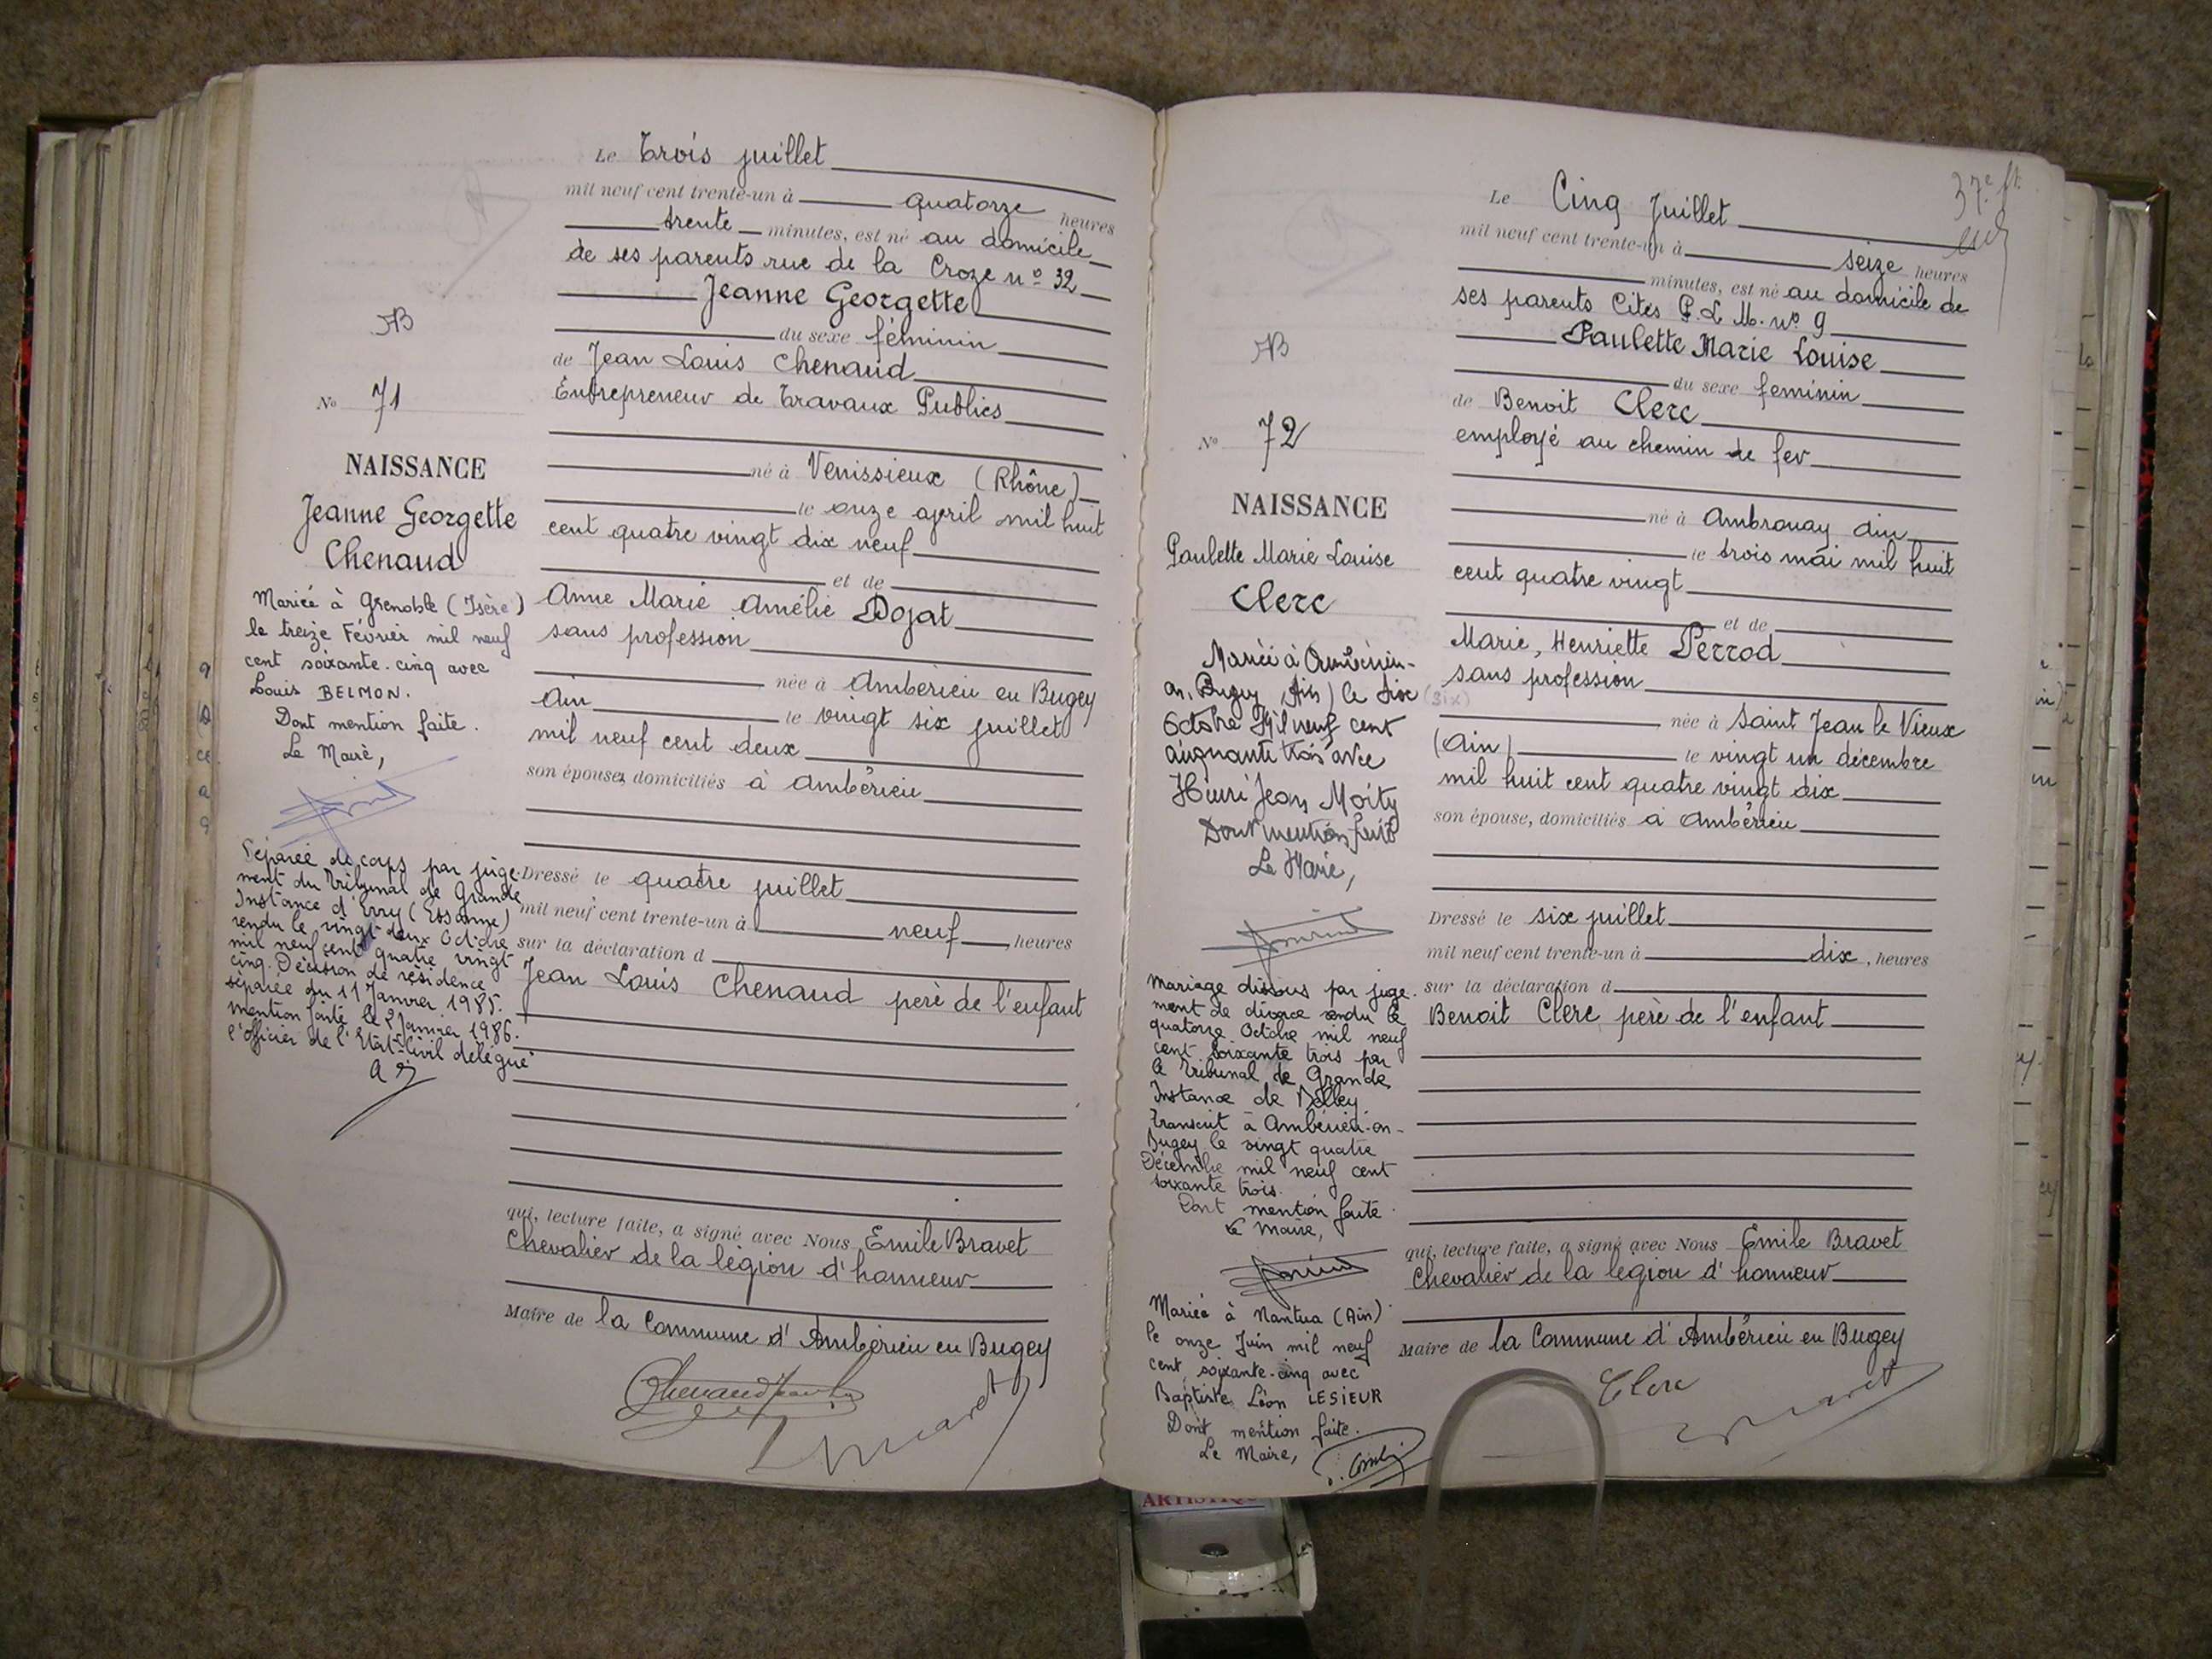 Le Trois juillet
mil neuf cent trente-un à quatorze heures
trente minutes, est né au domicile
de ses parents rue de la Croze nº 32
Jeanne Georgette
du sexe féminin
de Jean Louis Chenaud
Entrepreneur de Travaux Publics
né à Venissieux (Rhône)
le onze april mil huit
cent quatre vingt dix neuf
et de
Anne Marie Amélie Dojat
sans profession
née à Ambérieu en Bugey
Ain le vingt six juillet
mil neuf cent deux
son épouse, domiciliés à Ambérieu
Dressé le quatre juillet
mil neuf cent trente-un à neuf, heures
sur la déclaration d
Jean Louis Chenaud père de l'enfant
qui, lecture faite, a signé avec Nous Emile Bravet
Chevalier de la légion d'honneur
Maire de la Commune d'Ambérieu en Bugey
AB
Nº 71
NAISSANCE
Jeanne Georgette
Chenaud
Mariée à Grenoble (Isère)
le treize Février mil neuf
cent soixante-cinq avec
Louis BELMON.
Dont mention faite.
Le Maire,
Séparée de corps par juge-
ment du Tribunal de Grande
Instance d'Evry (Essonne)
rendu le vingt-deux Octobre
mil neuf cent quatre vingt
cinq. Décision de résidence
séparée du 11 Janvier 1985.
mention faite le 2 Janvier 1986.
l'officier de l'Etat-Civil délégué
37e ft.
Le Cinq Juillet
mil neuf cent trente-un à seize heures
minutes, est né au domicile de
ses parents Cités P.L.M. nº 9
Paulette Marie Louise
du sexe feminin
de Benoit Clerc
employé au chemin de fer
né à Ambronay Ain
le trois mai mil huit
cent quatre vingt
et de
Marie, Henriette Perrod
sans profession
née à Saint Jean le Vieux
(Ain) le vingt un décembre
mil huit cent quatre vingt dix
son épouse, domiciliés à Ambérieu
Dressé le six juillet
mil neuf cent trente-un à dix, heures
sur la déclaration d
Benoit Clerc père de l'enfant
qui, lecture faite, a signé avec Nous Emile Bravet
Chevalier de la légion d'honneur
Maire de la Commune d'Ambérieu en Bugey
Clerc
AB
Nº 72
NAISSANCE
Paulette Marie Louise
Clerc
Mariée à Ambérieu-
en-Bugey (Ain) le six (six)
Octobre Mil neuf cent
cinquante trois avec
Henri Jean Moity
Dont mention faite
Le Maire,
Mariage dissous par juge-
ment de divorce rendu le
quatorze Octobre mil neuf
cent soixante trois par
le Tribunal de Grande
Instance de Belley
transcrit à Ambérieu-en-
Bugey le vingt quatre
Décembre mil neuf cent
soixante trois.
Dont mention faite.
Le Maire,
Mariée à Nantua (Ain)
le onze Juin mil neuf
cent soixante-cinq avec
Baptiste Léon LESIEUR
Dont mention faite.
Le Maire,